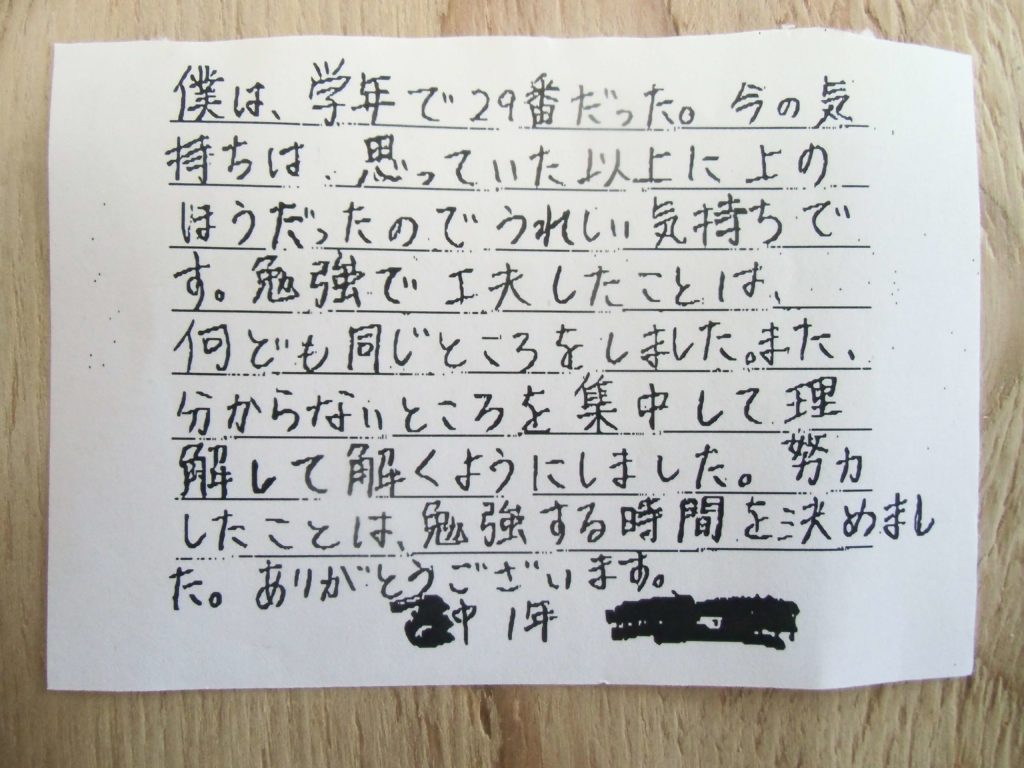 僕は、学年で29番だった。今の気
持ちは、思っていた以上に上の
ほうだったのでうれしい気持ちで
す。勉強で工夫したことは、
何ども同じところをしました。また、
分からないところを集中して理
解して解くようにしました。努力
したことは、勉強する時間を決めまし
た。ありがとうございます。
中1年